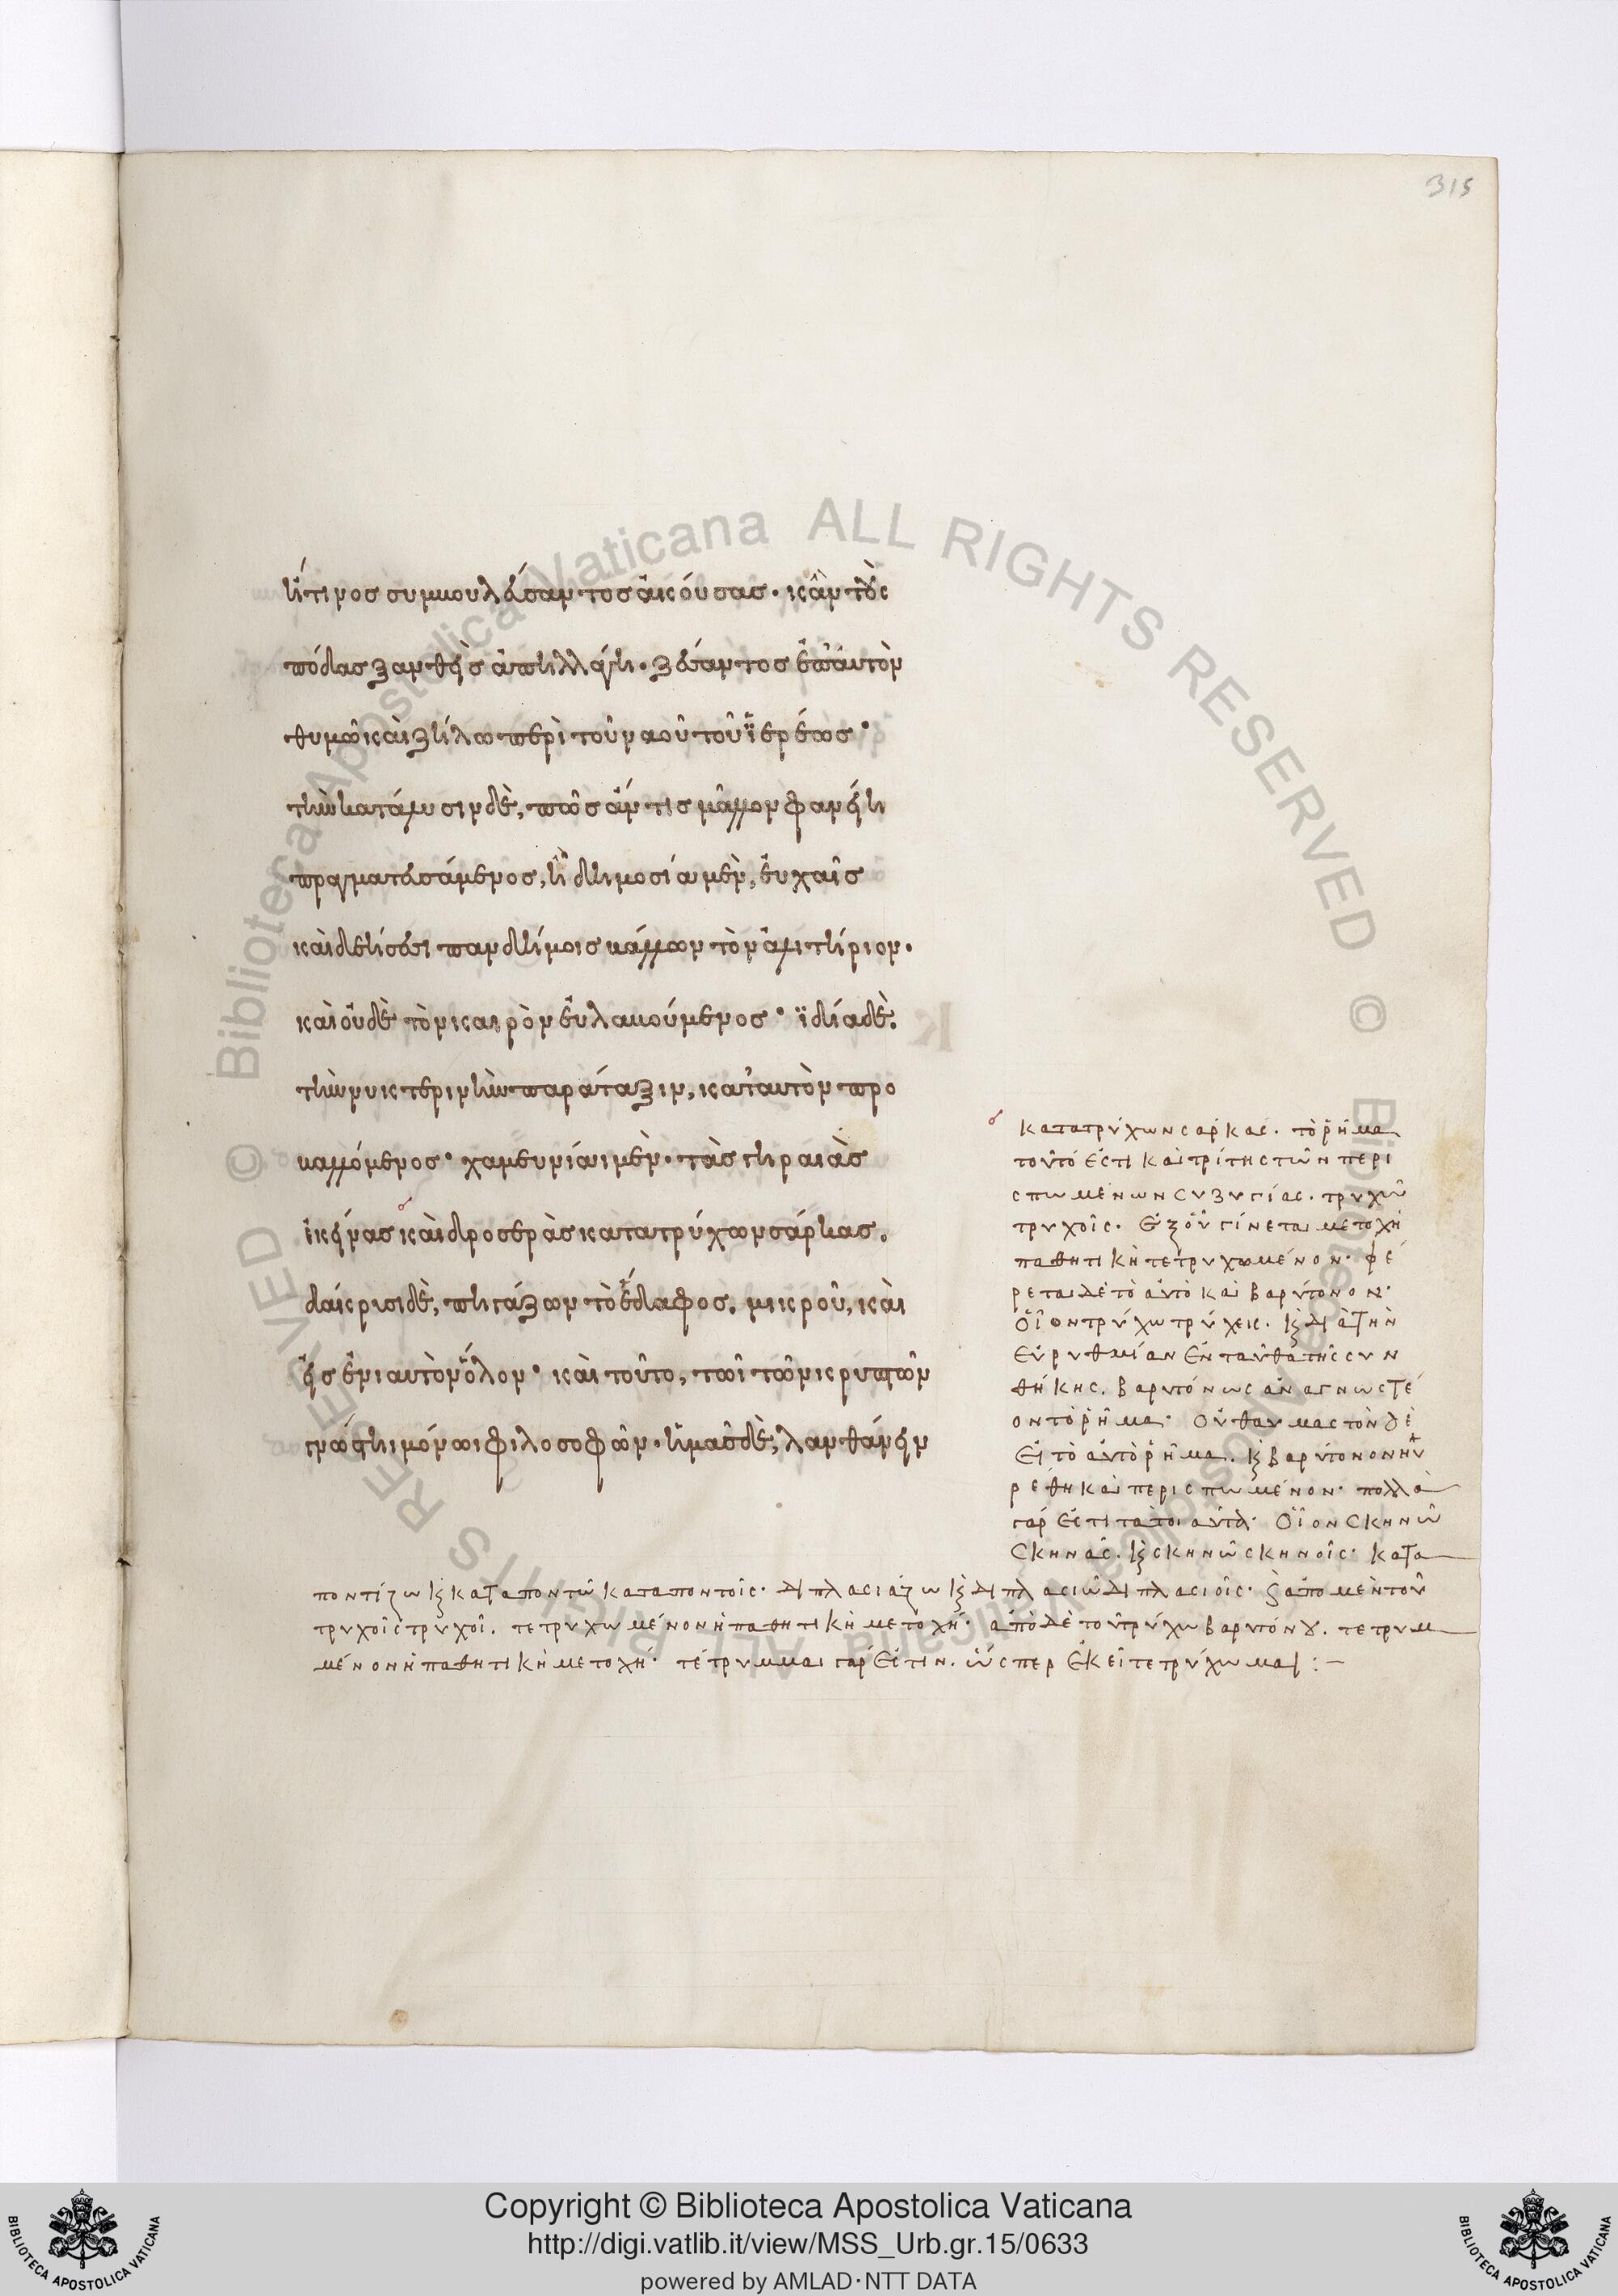 315
ἤ τινος συμβουλεύσαντος ἀκούσας· κἂν τοὺς
πόδας ξανθεὶς ἀπηλλάγη· ζέσαντος ἐπ' αὐτὸν
θυμῶ καὶ ζήλω περὶ τοῦ ναοῦ τοῦ ἱερέως·
τὴν κατάλυσιν δὲ, πῶς ἄν τις μᾶλλον φανείη
πραγματευσάμενος, ἢ δημοσία μὲν, εὐχαῖς
καὶ δεήσεσι πανδήμοις βάλλων τὸν ἀλιτήριον·
καὶ οὐδὲ τὸν καιρὸν εὐλαβούμενος· ἰδία δὲ,
τὴν νυκτερινὴν παράταξιν, κατ' αὐτὸν προ
βαλλόμενος· χαμευνίαι μὲν· τὰς γηραιὰς
ἐκείνας καὶ δροσερὰς κατατρύχων σάρκας,
δάκρυσι δὲ, πηγάζων τὸ ἔδαφος, μικροῦ, καὶ
εἰς ἐνιαυτὸν ὅλον· καὶ τοῦτο, τῶι τῶν κρυπτῶν
γνώστη μόνωι φιλοσοφῶν· ἡμᾶς δὲ, λανθάνειν
κατατρύχων σάρκας. τὸ ῥῆμα
τοῦτό ἐστι καὶ τρίτης τῶν περι
σπωμένων συζυγίας. τρυχῶ
τρυχοῖς. ἐξ οὗ γίνεται μετοχὴ
παθητικὴ τετρυχωμένον· φέ
ρεται δὲ τὸ αὐτὸ καὶ βαρύτονον·
οἷον τρύχω τρύχεις. κ διὰ τὴν
εὐρυθμίαν ἐνταῦθα τῆς συν
θήκης. βαρυτόνως ἀναγνωστέ
ον τὸ ῥῆμα· οὐ θαυμαστὸν δὲ
εἰ τὸ αὐτὸ ῥῆμα. κ βαρύτονον ηὑ
ρέθη καὶ περισπώμενον· πολλὰ
γάρ ἐστι τὰ τοιαῦτα· οἷον σκηνῶ
σκηνᾶς. κ σκηνῶ σκηνοῖς· κατα
ποντίζω κ καταποντῶ καταποντοῖς· διπλασιάζω κ διπλασιῶ διπλασιοῖς· κ ἀπὸ μὲν τοῦ
τρυχοῖς τρυχοῖ. τετρυχωμένον ἡ παθητικὴ μετοχή· ἀπὸ δὲ τοῦ τρύχω βαρυτόνου. τετρυμ
μένον ἡ παθητικὴ μετοχή· τέτρυμμαι γάρ ἐστιν. ὥσπερ ἐκεῖ τετρύχωμαι :–
Copyright © Biblioteca Apostolica Vaticana
http://digi.vatlib.it/view/MSS_Urb.gr.15/0633
powered by AMLAD·NTT DATA
BIBLIOTECA APOSTOLICA VATICANA
BIBLIOTECA APOSTOLICA VATICANA
© Biblioteca Apostolica Vaticana ALL RIGHTS RESERVED
© Biblioteca Apostolica Vaticana ALL RIGHTS RESERVED